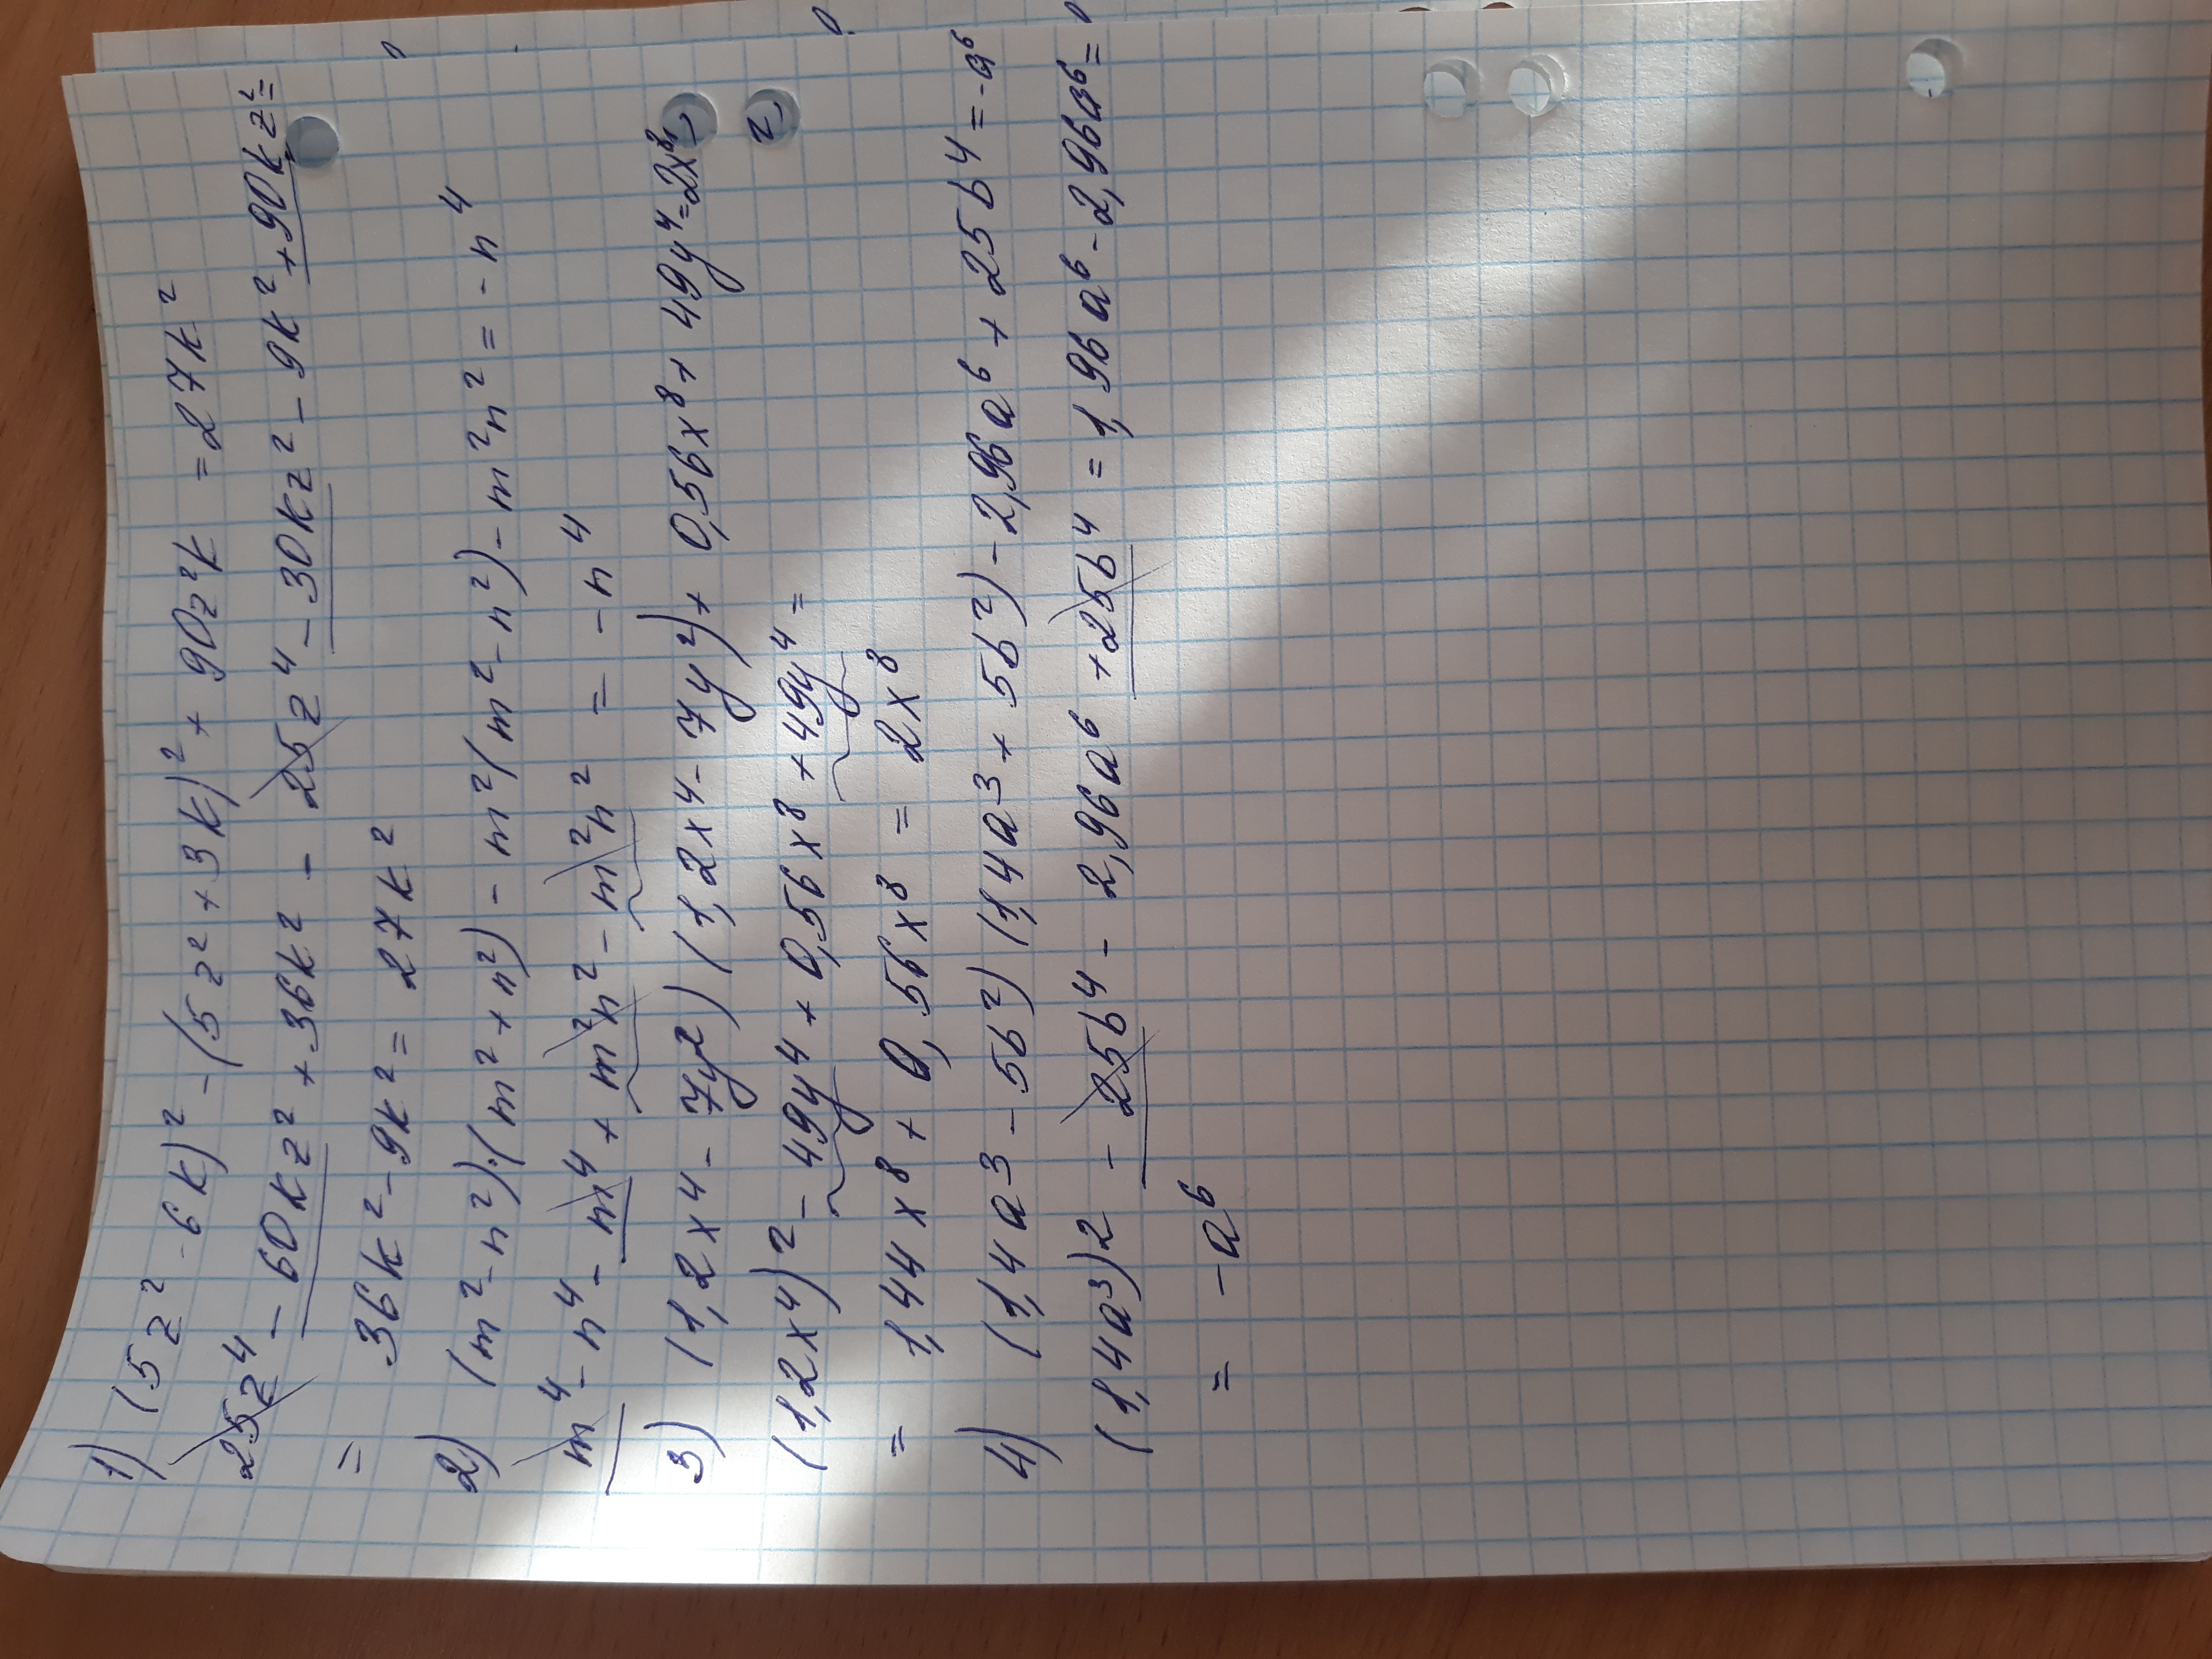 1) (5z² - 6k)² - (5z² + 3k)² + 90z²k = 27k²
25z⁴ - 60kz² + 36k² - 25z⁴ - 30kz² - 9k² + 90kz² =
= 36k² - 9k² = 27k²
2) (m² - n²)·(m² + n²) - m²(m² - n²) - m²n² = - n⁴
m⁴ - n⁴ - m⁴ + m²n² - m²n² = - n⁴
3) (1,2x⁴ - 7y²)(1,2x⁴ - 7y²) + 0,56x⁸ + 49y⁴ = 2x⁸
(1,2x⁴)² - 49y⁴ + 0,56x⁸ + 49y⁴ =
= 1,44x⁸ + 0,56x⁸ = 2x⁸
4) (1,4a³ - 5b²)(1,4a³ + 5b²) - 2,96a⁶ + 25b⁴ = -a⁶
(1,4a³)² - 25b⁴ - 2,96a⁶ + 25b⁴ = 1,96a⁶ - 2,96a⁶ =
= -a⁶